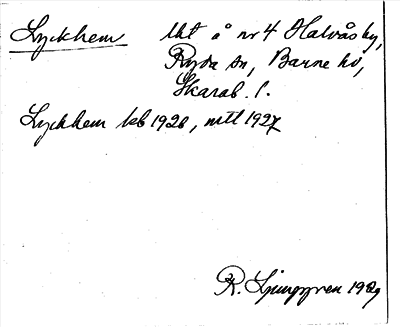 Lyckhem lht å nr 4 Halvåsby,
Ryda sn, Barne hd,
Skarab. l.
Lyckhem kb 1920, mtl 1927
R. Ljunggren 1989